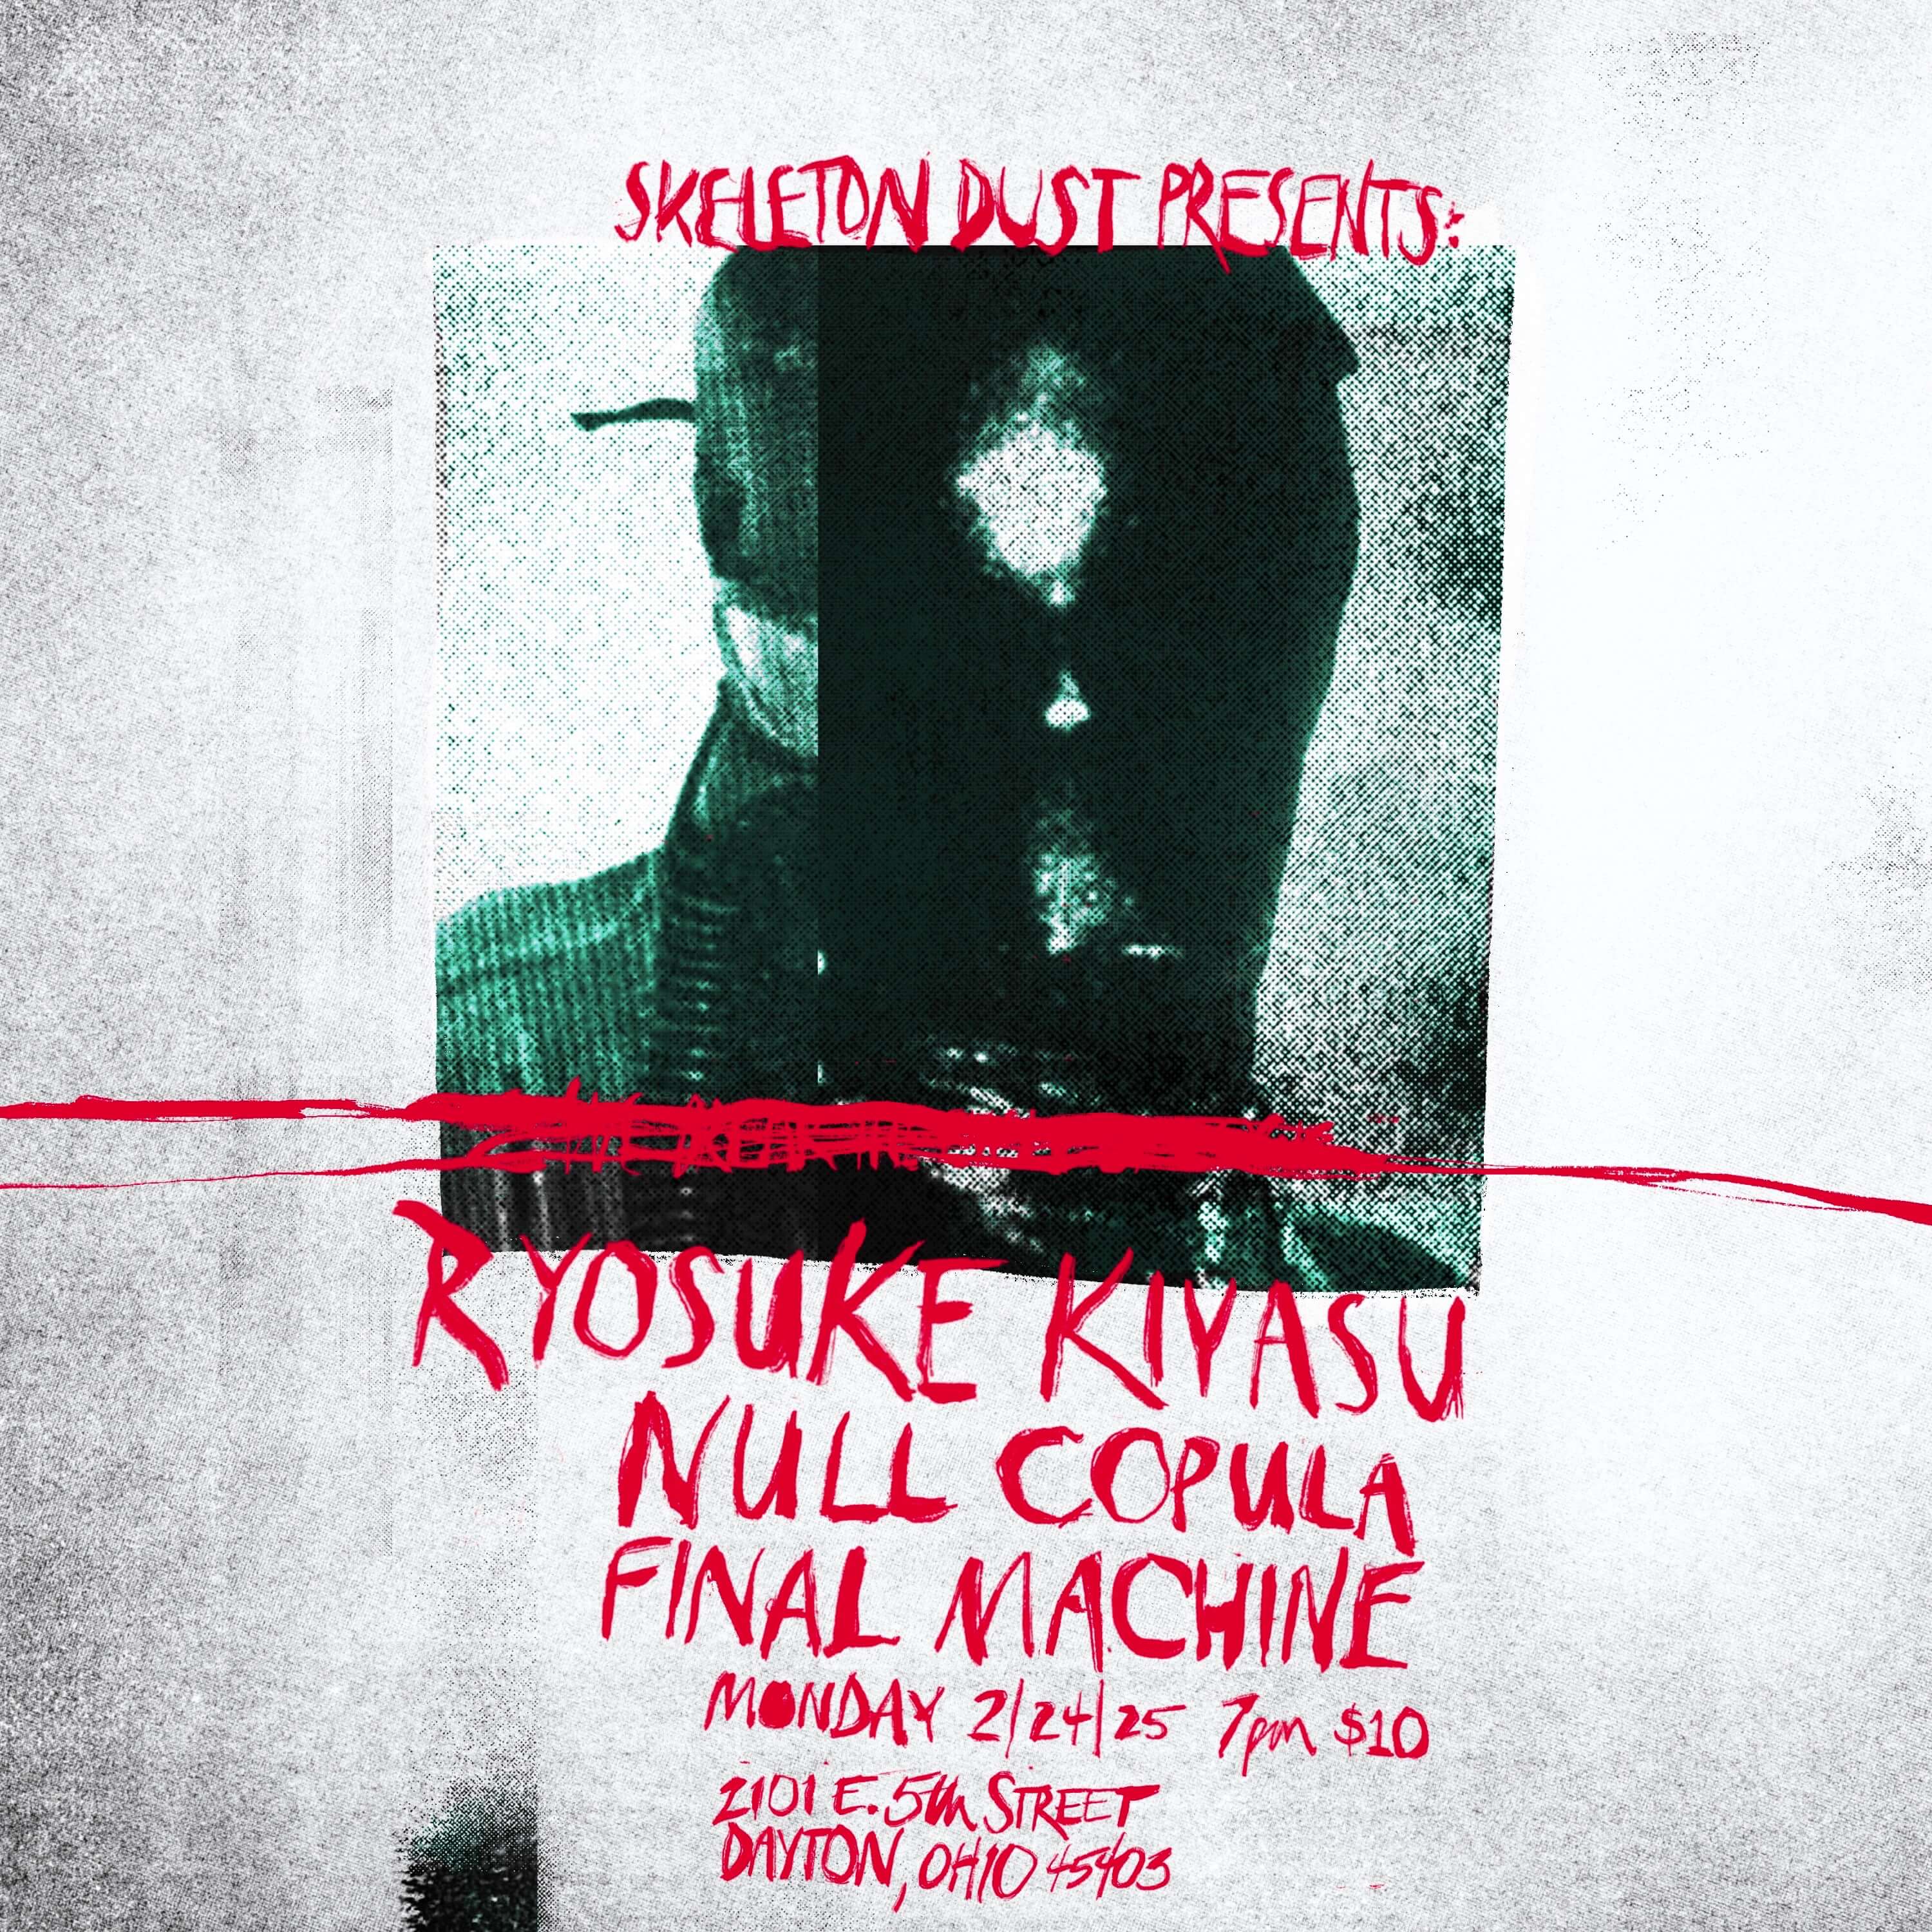 SKELETON DUST PRESENTS:
RYOSUKE KIYASU
NULL COPULA
FINAL MACHINE
MONDAY 2/24/25 7pm $10
2101 E. 5th STREET
DAYTON, OHIO 45403